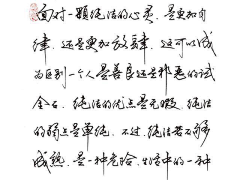 面对一颗纯洁的心灵，是更加自
律，还是更加放肆，这可以成
为区别一个人是善良还是邪恶的试
金石，纯洁的优点是无瑕，纯洁
的弱点是单纯，不过，纯洁若不够
成熟，是一种危险，生活中的一种